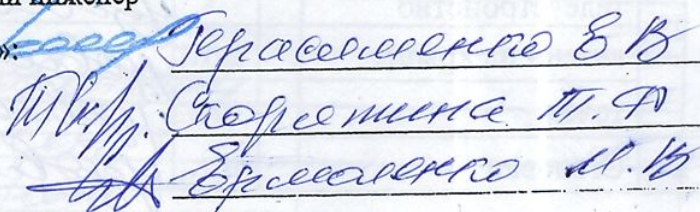 инженер
»: Герасименко Е В
Скорятина Т. Ф
Ермоленко М. В